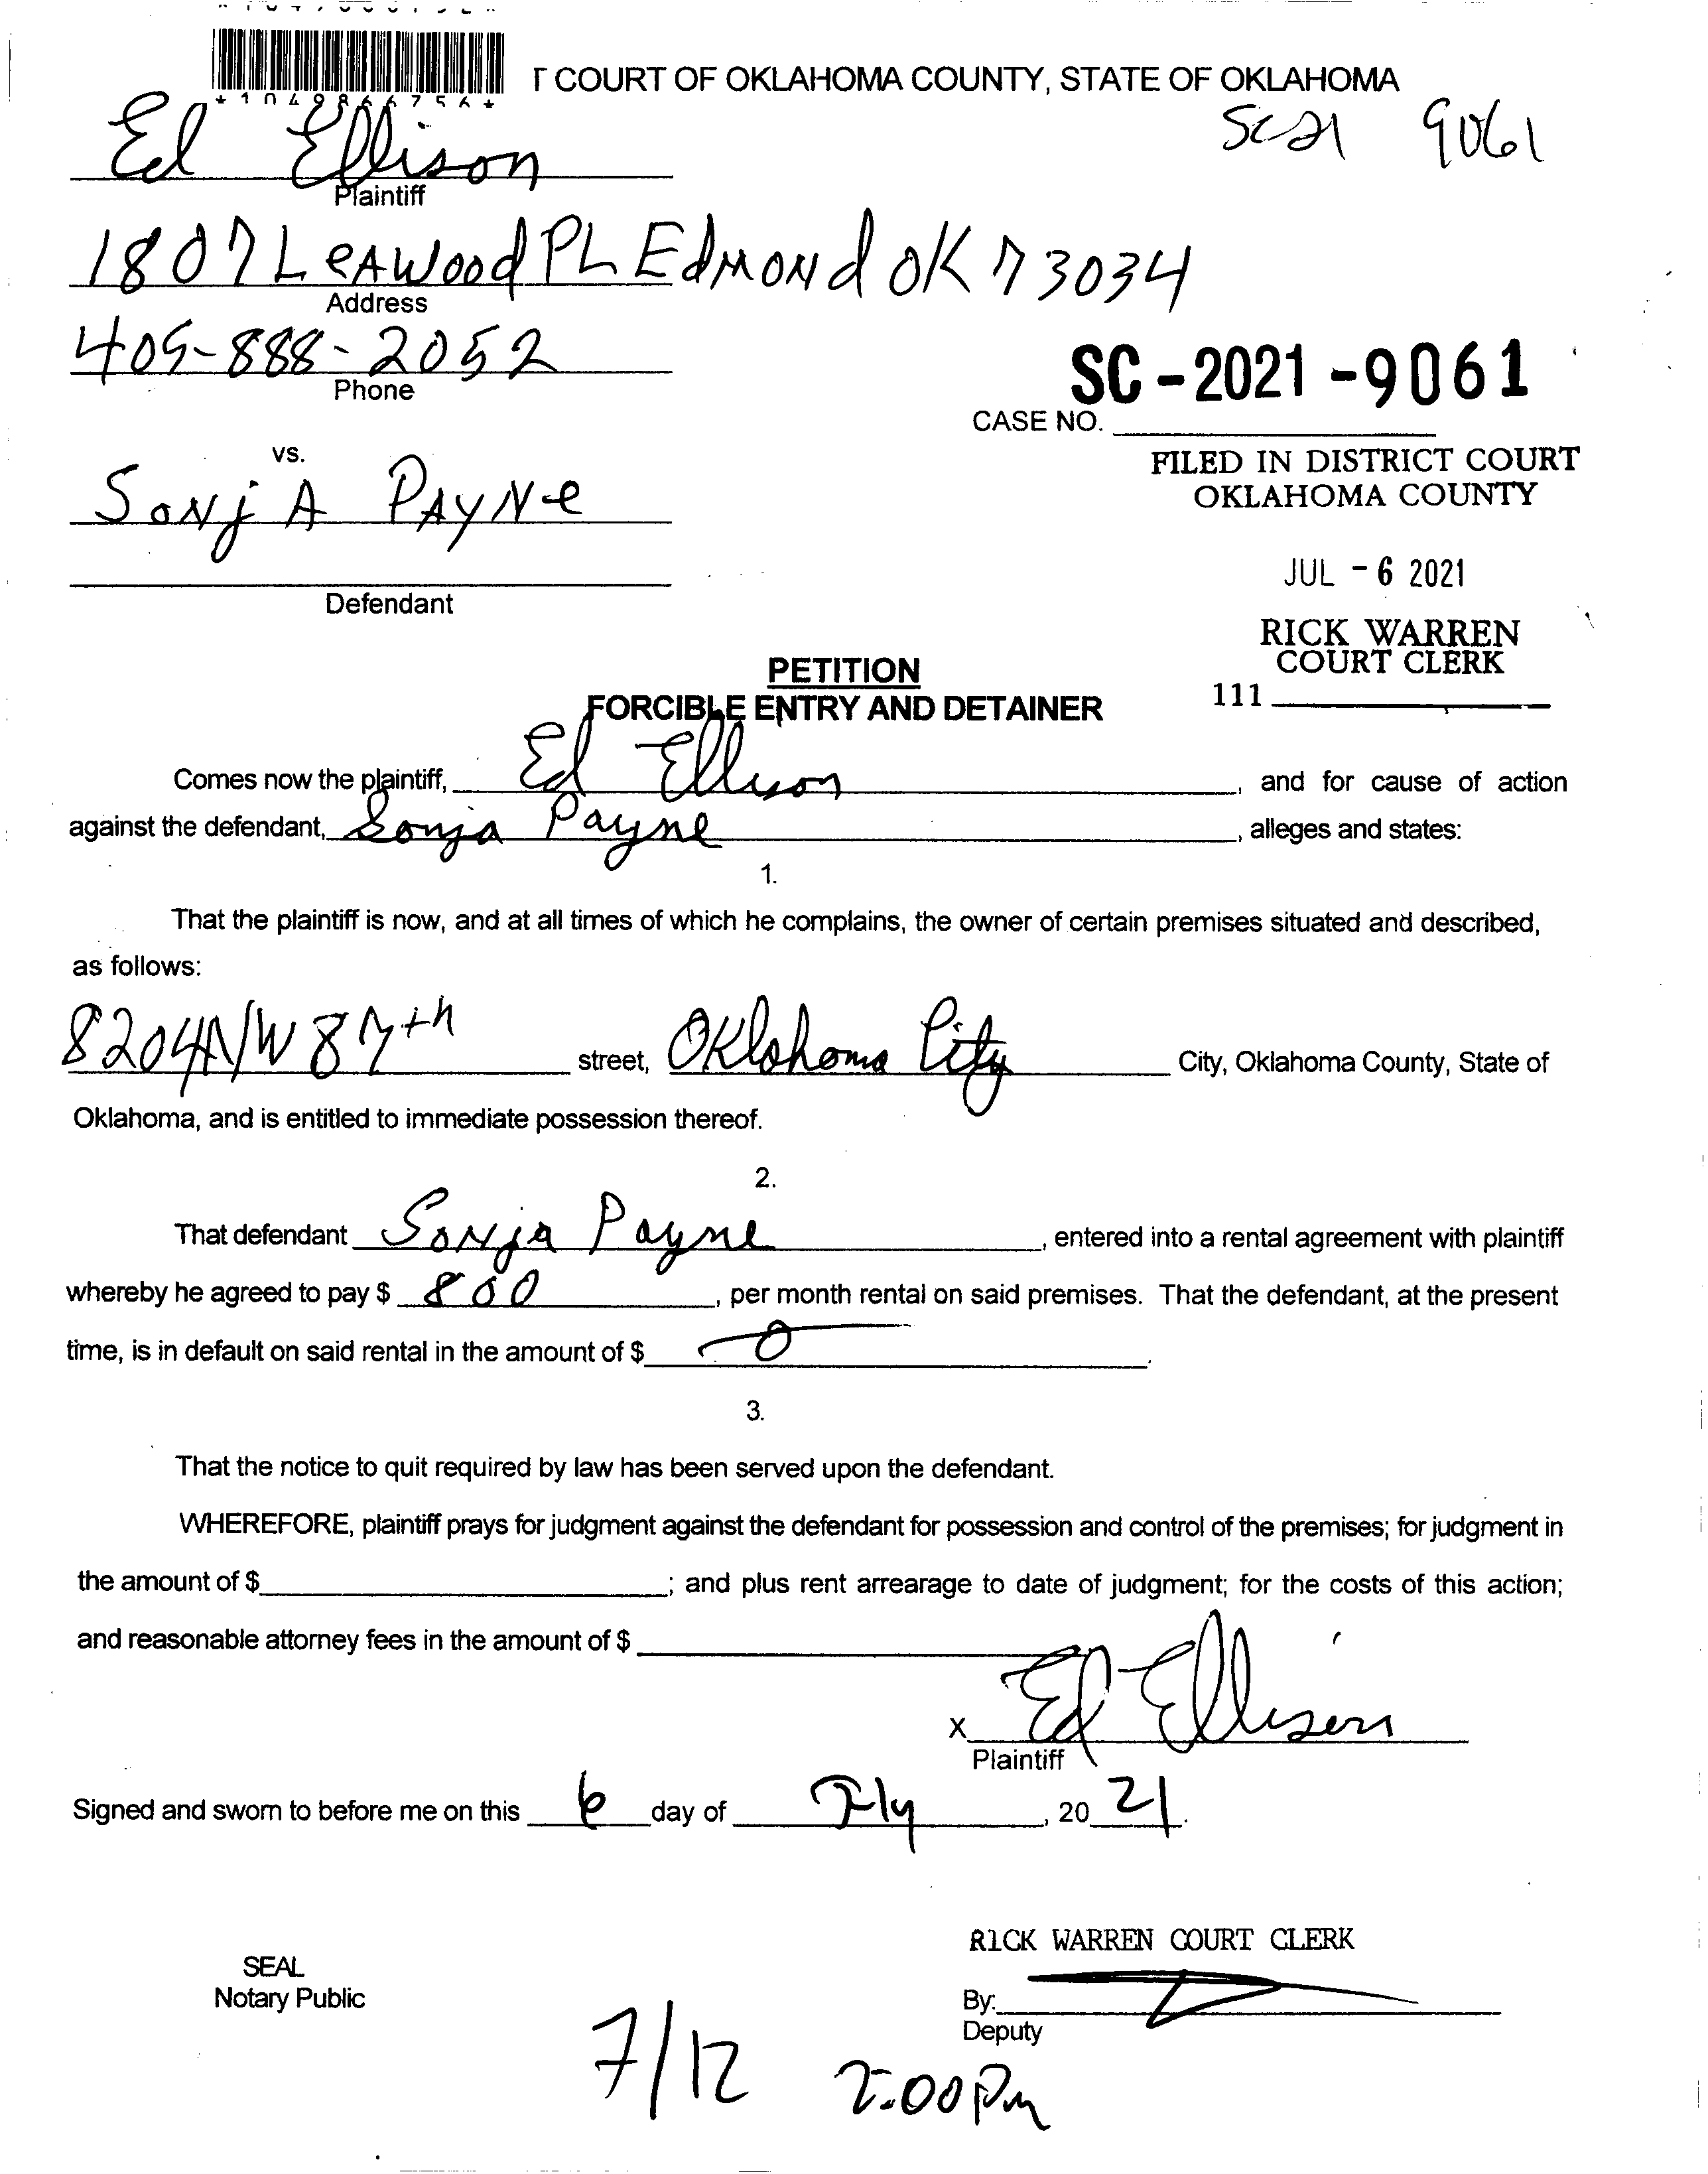 T COURT OF OKLAHOMA COUNTY, STATE OF OKLAHOMA
*1049866756*
SC21 9061
Ed Ellison
Plaintiff
1807 Leawood PL Edmond OK 73034
Address
405-888-2052
Phone
SC-2021-9061
CASE NO.
vs.
FILED IN DISTRICT COURT
OKLAHOMA COUNTY
Sonja Payne
JUL - 6 2021
Defendant
RICK WARREN
COURT CLERK
111
PETITION
FORCIBLE ENTRY AND DETAINER
Comes now the plaintiff, Ed Ellison, and for cause of action
against the defendant, Sonja Payne, alleges and states:
1.
That the plaintiff is now, and at all times of which he complains, the owner of certain premises situated and described,
as follows:
8204 NW 87th street, Oklahoma City City, Oklahoma County, State of
Oklahoma, and is entitled to immediate possession thereof.
2.
That defendant Sonja Payne, entered into a rental agreement with plaintiff
whereby he agreed to pay $ 800, per month rental on said premises. That the defendant, at the present
time, is in default on said rental in the amount of $ 0.
3.
That the notice to quit required by law has been served upon the defendant.
WHEREFORE, plaintiff prays for judgment against the defendant for possession and control of the premises; for judgment in
the amount of $; and plus rent arrearage to date of judgment; for the costs of this action;
and reasonable attorney fees in the amount of $
x Ed Ellison
Plaintiff
Signed and sworn to before me on this 6 day of July, 2021.
RICK WARREN COURT CLERK
SEAL
Notary Public
By:
Deputy
7/12 2:00 Pm